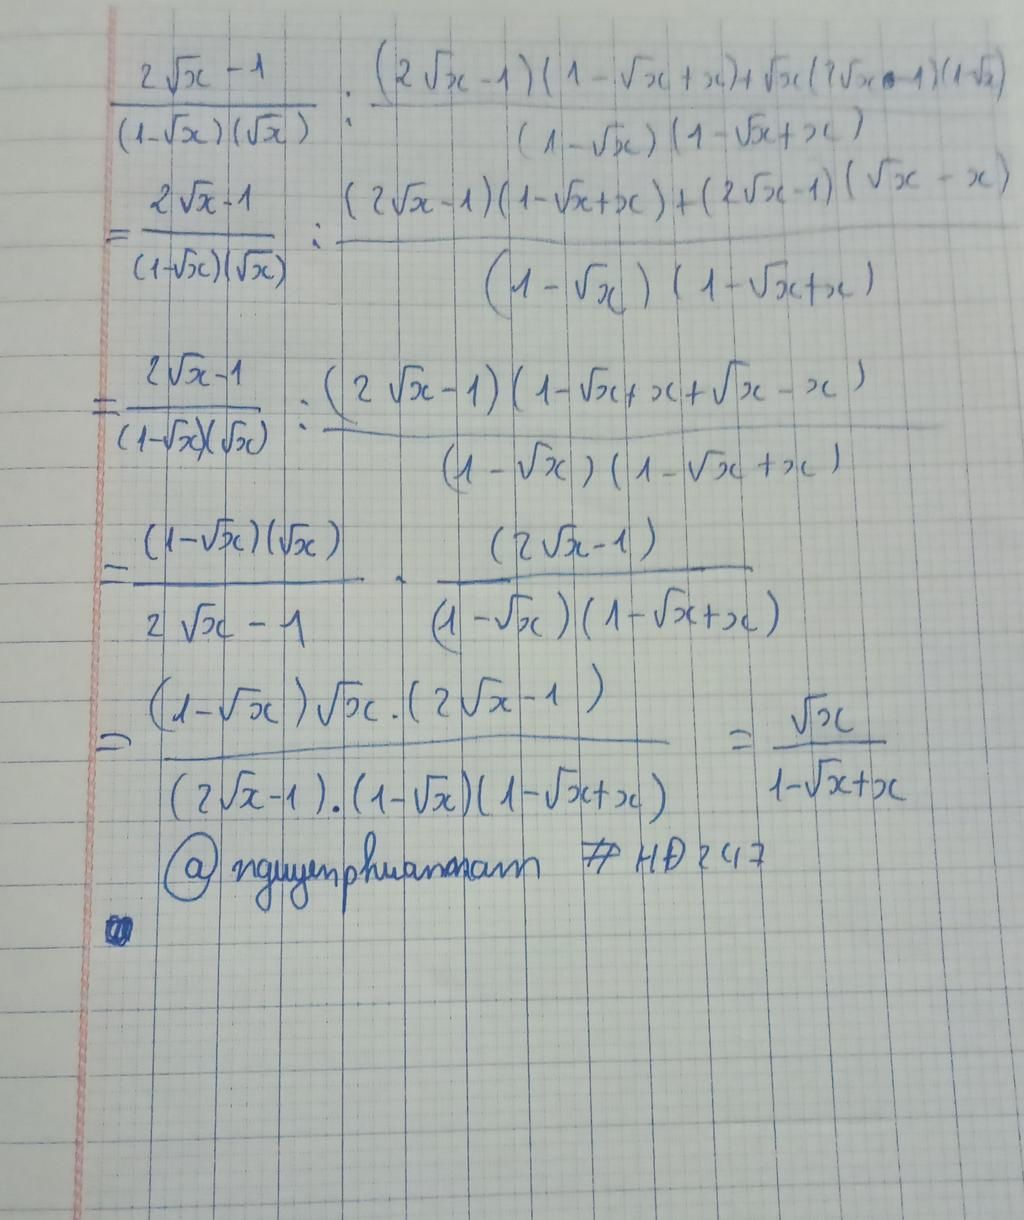 2√x - 1 / (1-√x)(√x) : (2√x - 1)(1 - √x + x) + √x(2√x - 1)(1-√x) / (1-√x)(1-√x+x)
= 2√x-1 / (1-√x)(√x) : (2√x-1)(1-√x+x)+(2√x-1)(√x - x) / (1-√x)(1-√x+x)
= 2√x-1 / (1-√x)(√x) : (2√x-1)(1-√x+x+√x-x) / (1-√x)(1-√x+x)
= (1-√x)(√x) / 2√x - 1 . (2√x-1) / (1-√x)(1-√x+x)
= (1-√x)√x.(2√x-1) / (2√x-1).(1-√x)(1-√x+x) = √x / 1-√x+x
# HĐ247